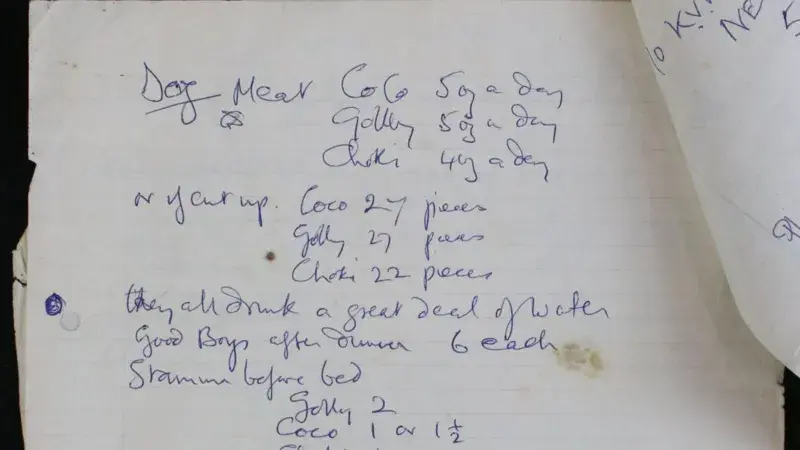 Dog Meat Coco 5oz a day
Golly 5oz a day
Choki 4oz a day
or if cut up. Coco 27 pieces
Golly 27 pieces
Choki 22 pieces
they all drink a great deal of water
Good Boys after dinner 6 each
before bed
Golly 2
Coco 1 or 1½